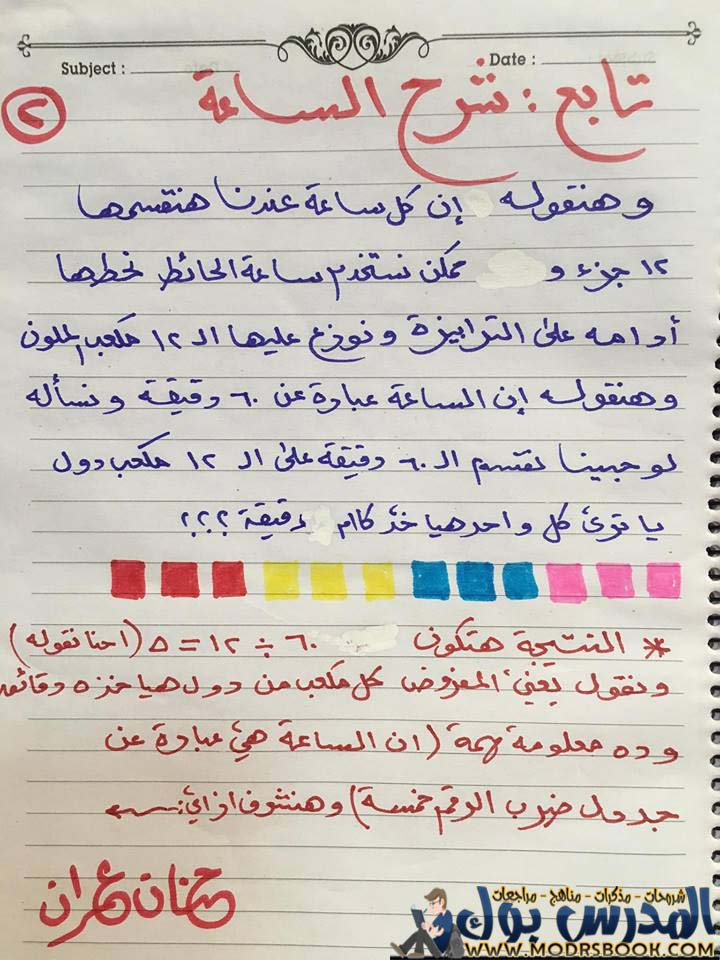 Subject :
Date :
تابع : شرح الساعة
٢
وهنقوله إن كل ساعة عندنا هنقسمها
١٢ جزء و ممكن نستخدم ساعة الحائط نحطها
أدامه على الترابيزة ونوزع عليها الـ ١٢ مكعب الملون
وهنقوله إن الساعة عبارة عن ٦٠ دقيقة ونسأله
لو جينا نقسم الـ ٦٠ دقيقة على الـ ١٢ مكعب دول
يا ترى كل واحد هياخد كام دقيقة ؟؟؟
* النتيجة هتكون ٦٠ ÷ ١٢ = ٥ (احنا نقوله)
ونقول يعنى المفروض كل مكعب من دول هياخد ٥ دقائق
وده معلومة مهمة (ان الساعة هي عبارة عن
جدول ضرب الرقم خمسة) وهنشوف ازاي :
حنان عمران
شروحات - مذكرات - مناهج - مراجعات
المدرس بوك
WWW.MODRSBOOK.COM